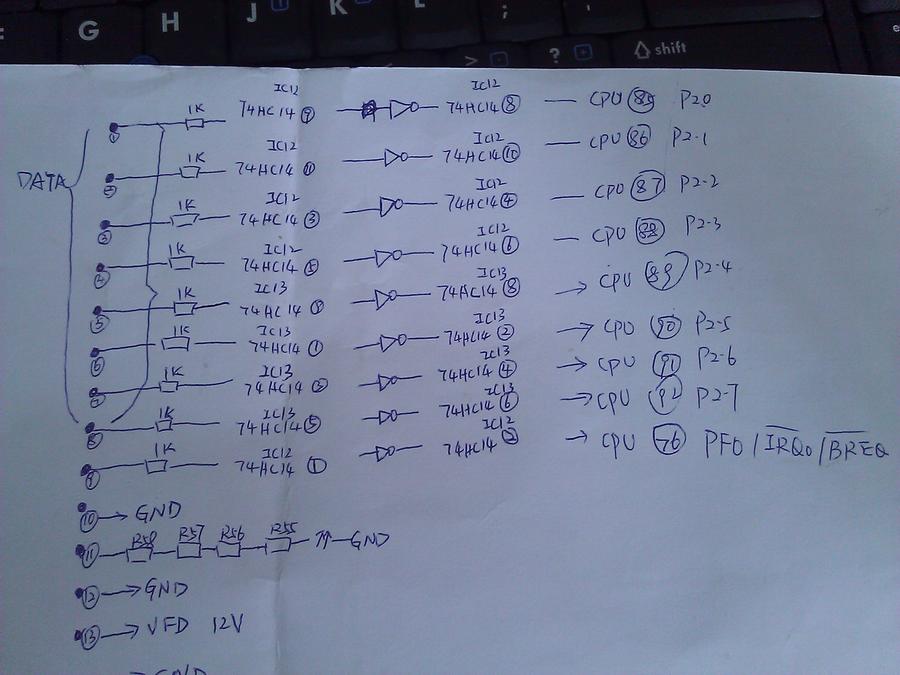 G H J K L ;
> ? shift
IC12 IC12
1K 74HC14 ⑨ 74HC14 ⑧ — CPU 85 P20
①
IC12 IC12
1K 74HC14 ⑪ 74HC14 ⑩ — CPU 86 P2-1
②
DATA
IC12 IC12
1K 74HC14 ③ 74HC14 ④ — CPU 87 P2-2
③
IC12 IC12
1K 74HC14 ⑤ 74HC14 ⑥ — CPU 88 P2-3
④
IC13 IC13
1K 74HC14 ⑨ 74HC14 ⑧ → CPU 89 P2-4
⑤
IC13 IC13
1K 74HC14 ① 74HC14 ② → CPU 90 P2-5
⑥
IC13 IC13
1K 74HC14 ③ 74HC14 ④ → CPU 91 P2-6
⑦
IC13 IC13
1K 74HC14 ⑤ 74HC14 ⑥ → CPU 92 P2-7
⑧
IC12 IC12
1K 74HC14 ① 74HC14 ② → CPU 76 PF0/IRQ0/BREQ
⑨
⑩ → GND
⑪ R58 R57 R56 R55 — GND
⑫ → GND
⑬ → VFD 12V
→ GND